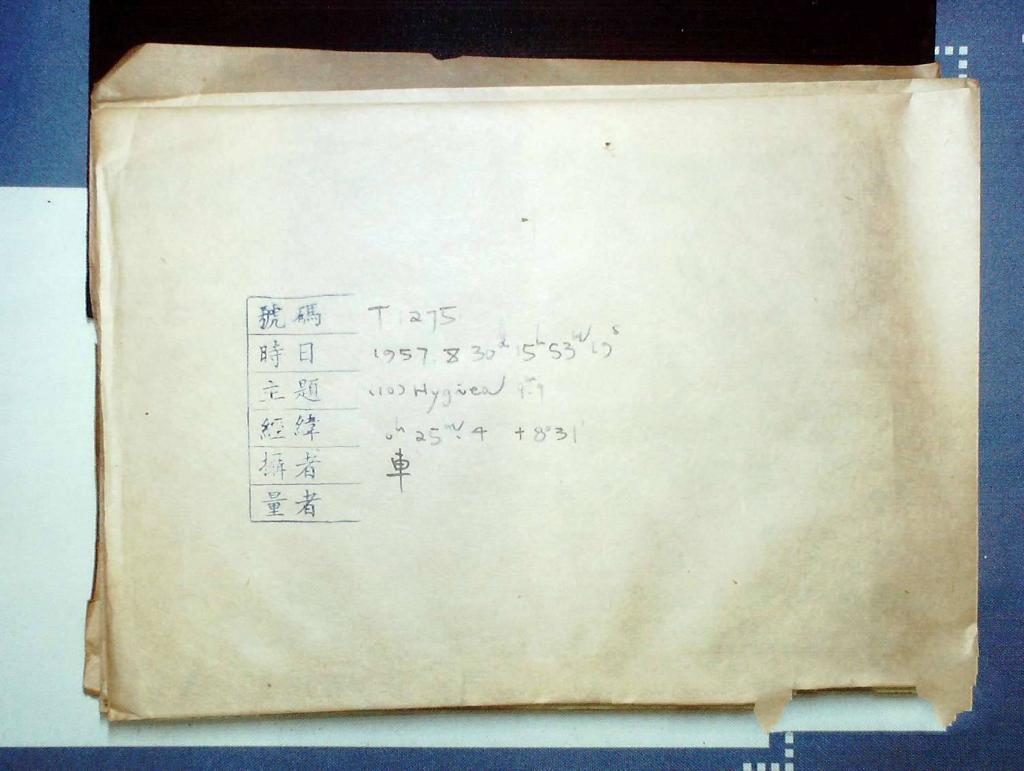 號碼 T 1275
時日 1957. 8 30ᵈ 15ʰ 53ᵐ 19ˢ
主題 (10) Hygiea 9ᵐ.9
經緯 0ʰ 25ᵐ.4 +8°31'
攝者 車
量者